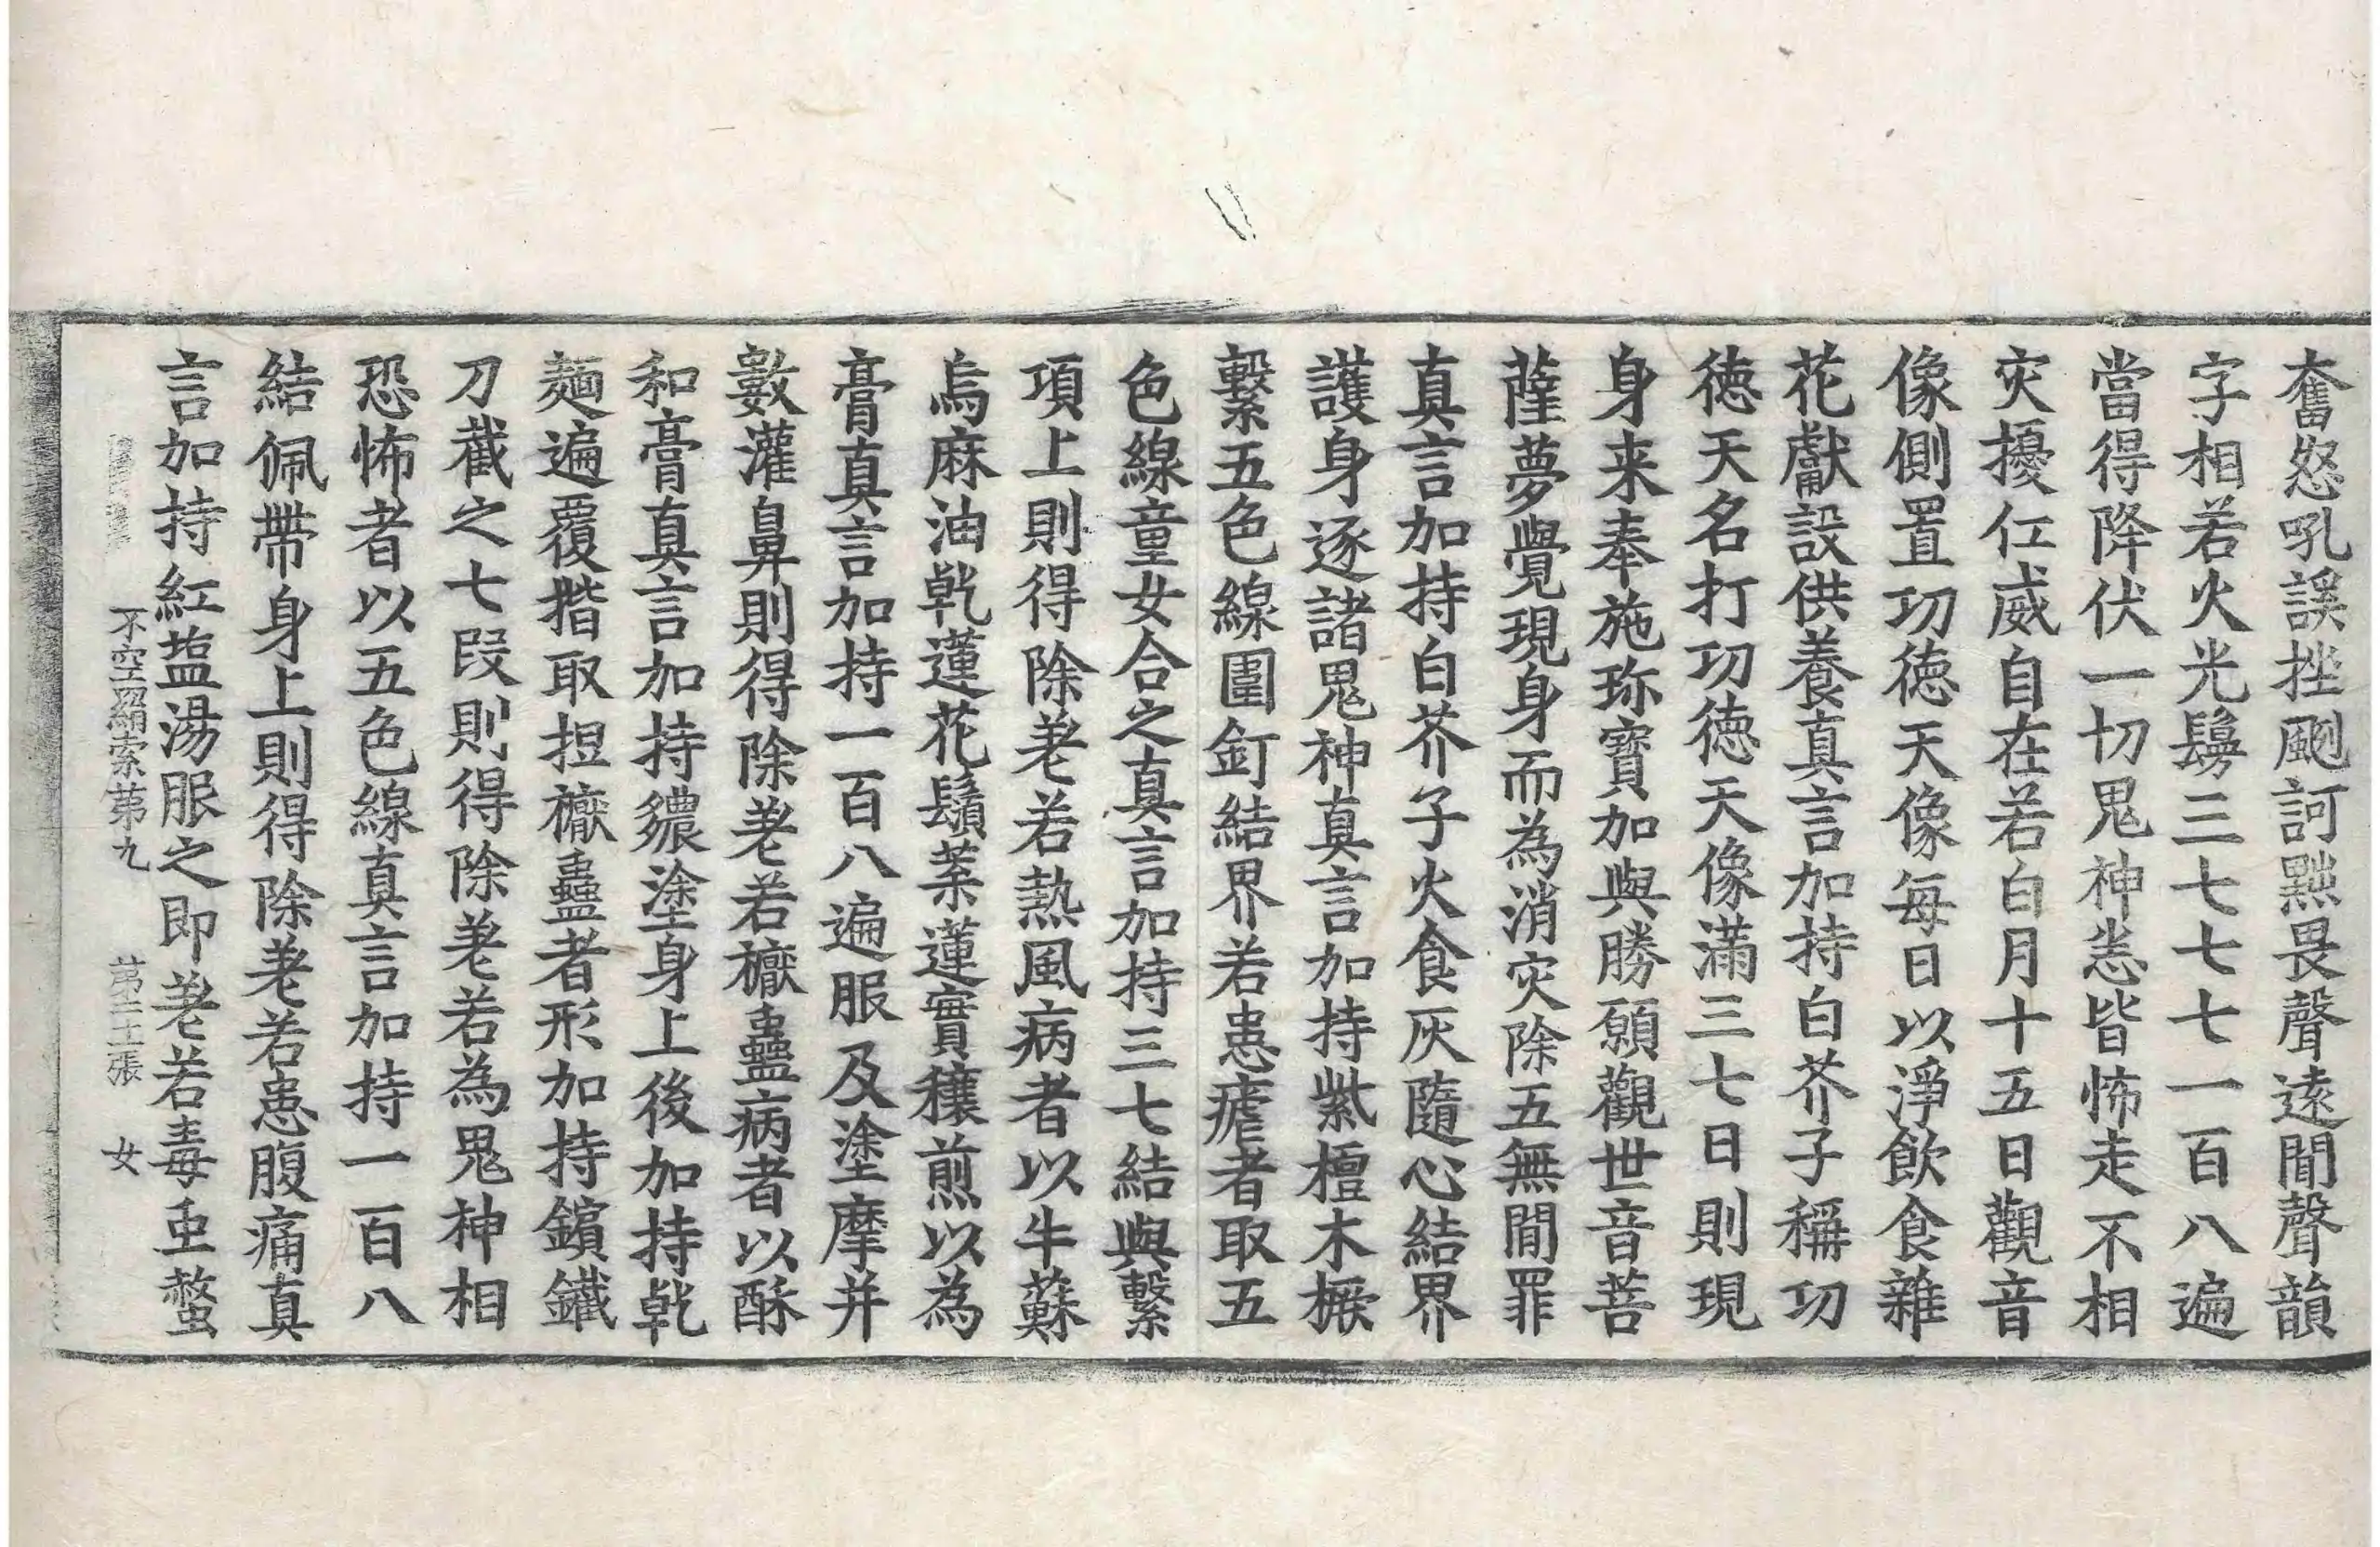 奮怒吼誒挫颲訶㸃畏聲遠聞聲韻
字相若火光鬘三七七七一百八遍
當得降伏一切鬼神恙皆怖走不相
灾擾仁威自在若白月十五日觀音
像側置功徳天像每日以淨飲食雜
花獻設供養真言加持白芥子稱功
徳天名打功徳天像滿三七日則現
身来奉施珎寶加與勝願觀世音菩
薩夢覺現身而為消灾除五無閒罪
真言加持白芥子火食灰隨心結界
護身逐諸鬼神真言加持紫檀木橛
繫五色線圍釘結界若患瘧者取五
色線童女合之真言加持三七結與繫
項上則得除差若熱風病者以牛蘇
烏麻油乹蓮花鬚葇蓮實穰煎以為
膏真言加持一百八遍服及塗摩并
數灌鼻則得除差若㯌蠱病者以酥
和膏真言加持繷塗身上後加持乹
麺遍覆揩取揑㯌蠱者形加持鑌鐵
刀截之七段則得除差若為鬼神相
恐怖者以五色線真言加持一百八
結佩帶身上則得除差若患腹痛真
言加持紅塩湯服之即差若毒虫螫
不空羂索苐九 苐二十張 女